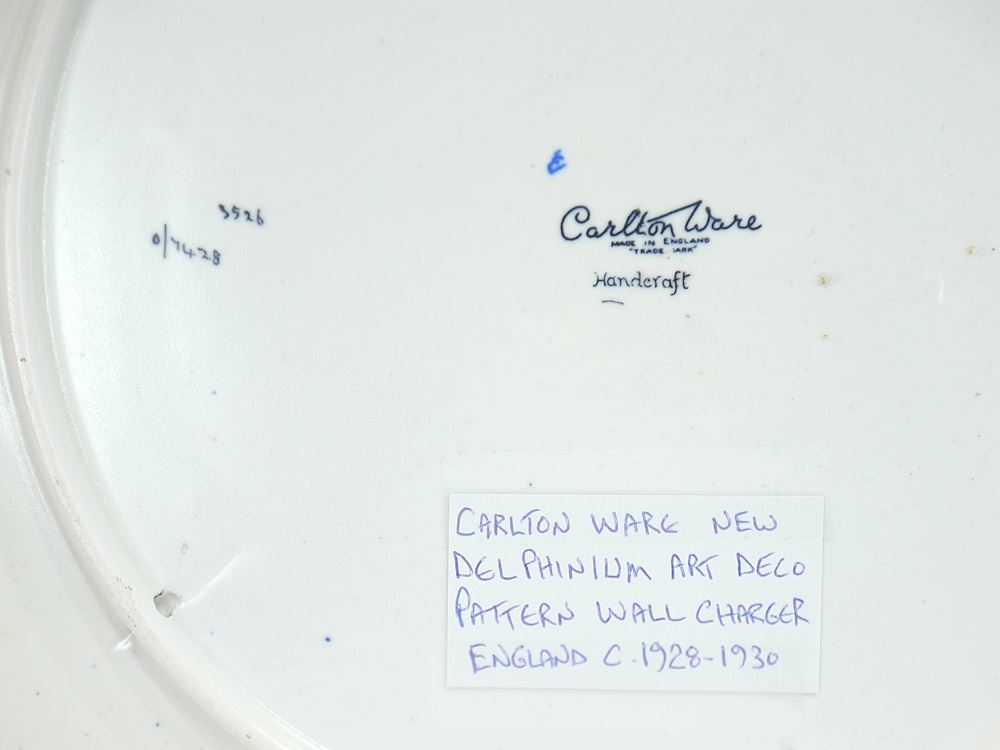 3526
0/7428
Carlton Ware
MADE IN ENGLAND
"TRADE MARK"
Handcraft
CARLTON WARE NEW
DELPHINIUM ART DECO
PATTERN WALL CHARGER
ENGLAND C.1928-1930